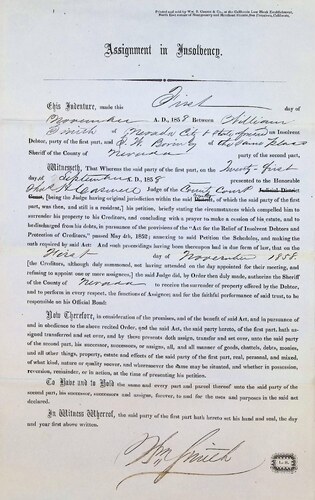 Printed and sold by Wm. B. Cooke & Co., at the California Law Blank Establishment,
North East corner of Montgomery and Merchant Streets, San Francisco, California.
Assignment in Insolvency.
This Indenture, made this First day of
November A. D., 1858 Between William
Smith of Nevada City & State aforesaid an Insolvent
Debtor, party of the first part, and of the same place
Sheriff of the County of Nevada party of the second part,
Witnesseth, That Whereas the said party of the first part, on the Twenty first
day of September A. D. 1858 presented to the Honorable
Judge of the County Court Judicial District
Court, [being the Judge having original jurisdiction within the said District, of which the said party of the first
part, was then, and still is a resident,] his petition, briefly stating the circumstances which compelled him to
surrender his property to his Creditors, and concluding with a prayer to make a cession of his estate, and to
be discharged from his debts, in pursuance of the provisions of the "Act for the Relief of Insolvent Debtors and
Protection of Creditors," passed May 4th, 1852; annexing to said Petition the Schedules, and making the
oath required by said Act: And such proceedings having been thereupon had in due form of law, that on the
First day of November 1858.
[the Creditors, although duly summoned, not having attended on the day appointed for their meeting, and
refusing to appoint one or more assignees,] the said Judge did, by Order then duly made, authorize the Sheriff
of the County of Nevada to receive the surrender of property offered by the Debtor,
and to perform in every respect, the functions of Assignee; and for the faithful performance of said trust, to be
responsible on his Official Bond:
Now Therefore, in consideration of the premises, and of the benefit of said Act, and in pursuance of
and in obedience to the above recited Order, and the said Act, the said party hereto, of the first part, hath as-
signed transferred and set over, and by these presents doth assign, transfer and set over, unto the said party of
the second part, his successor, successors, or assigns, all, and all manner of goods, chattels, debts, monies,
and all other things, property, estate and effects of the said party of the first part, real, personal, and mixed,
of what kind, nature or quality soever, and wheresoever the same may be situated, and whether in possession,
reversion, remainder, or in action, at the time of presenting his petition.
To Have and to Hold the same and every part and parcel thereof unto the said party of the
second part, his successor, successors and assigns, forever, to and for the uses and purposes in the said act
declared.
In Witness Whereof, the said party of the first part hath hereto set his hand and seal, the day
and year first above written.
Wm Smith
L. S.